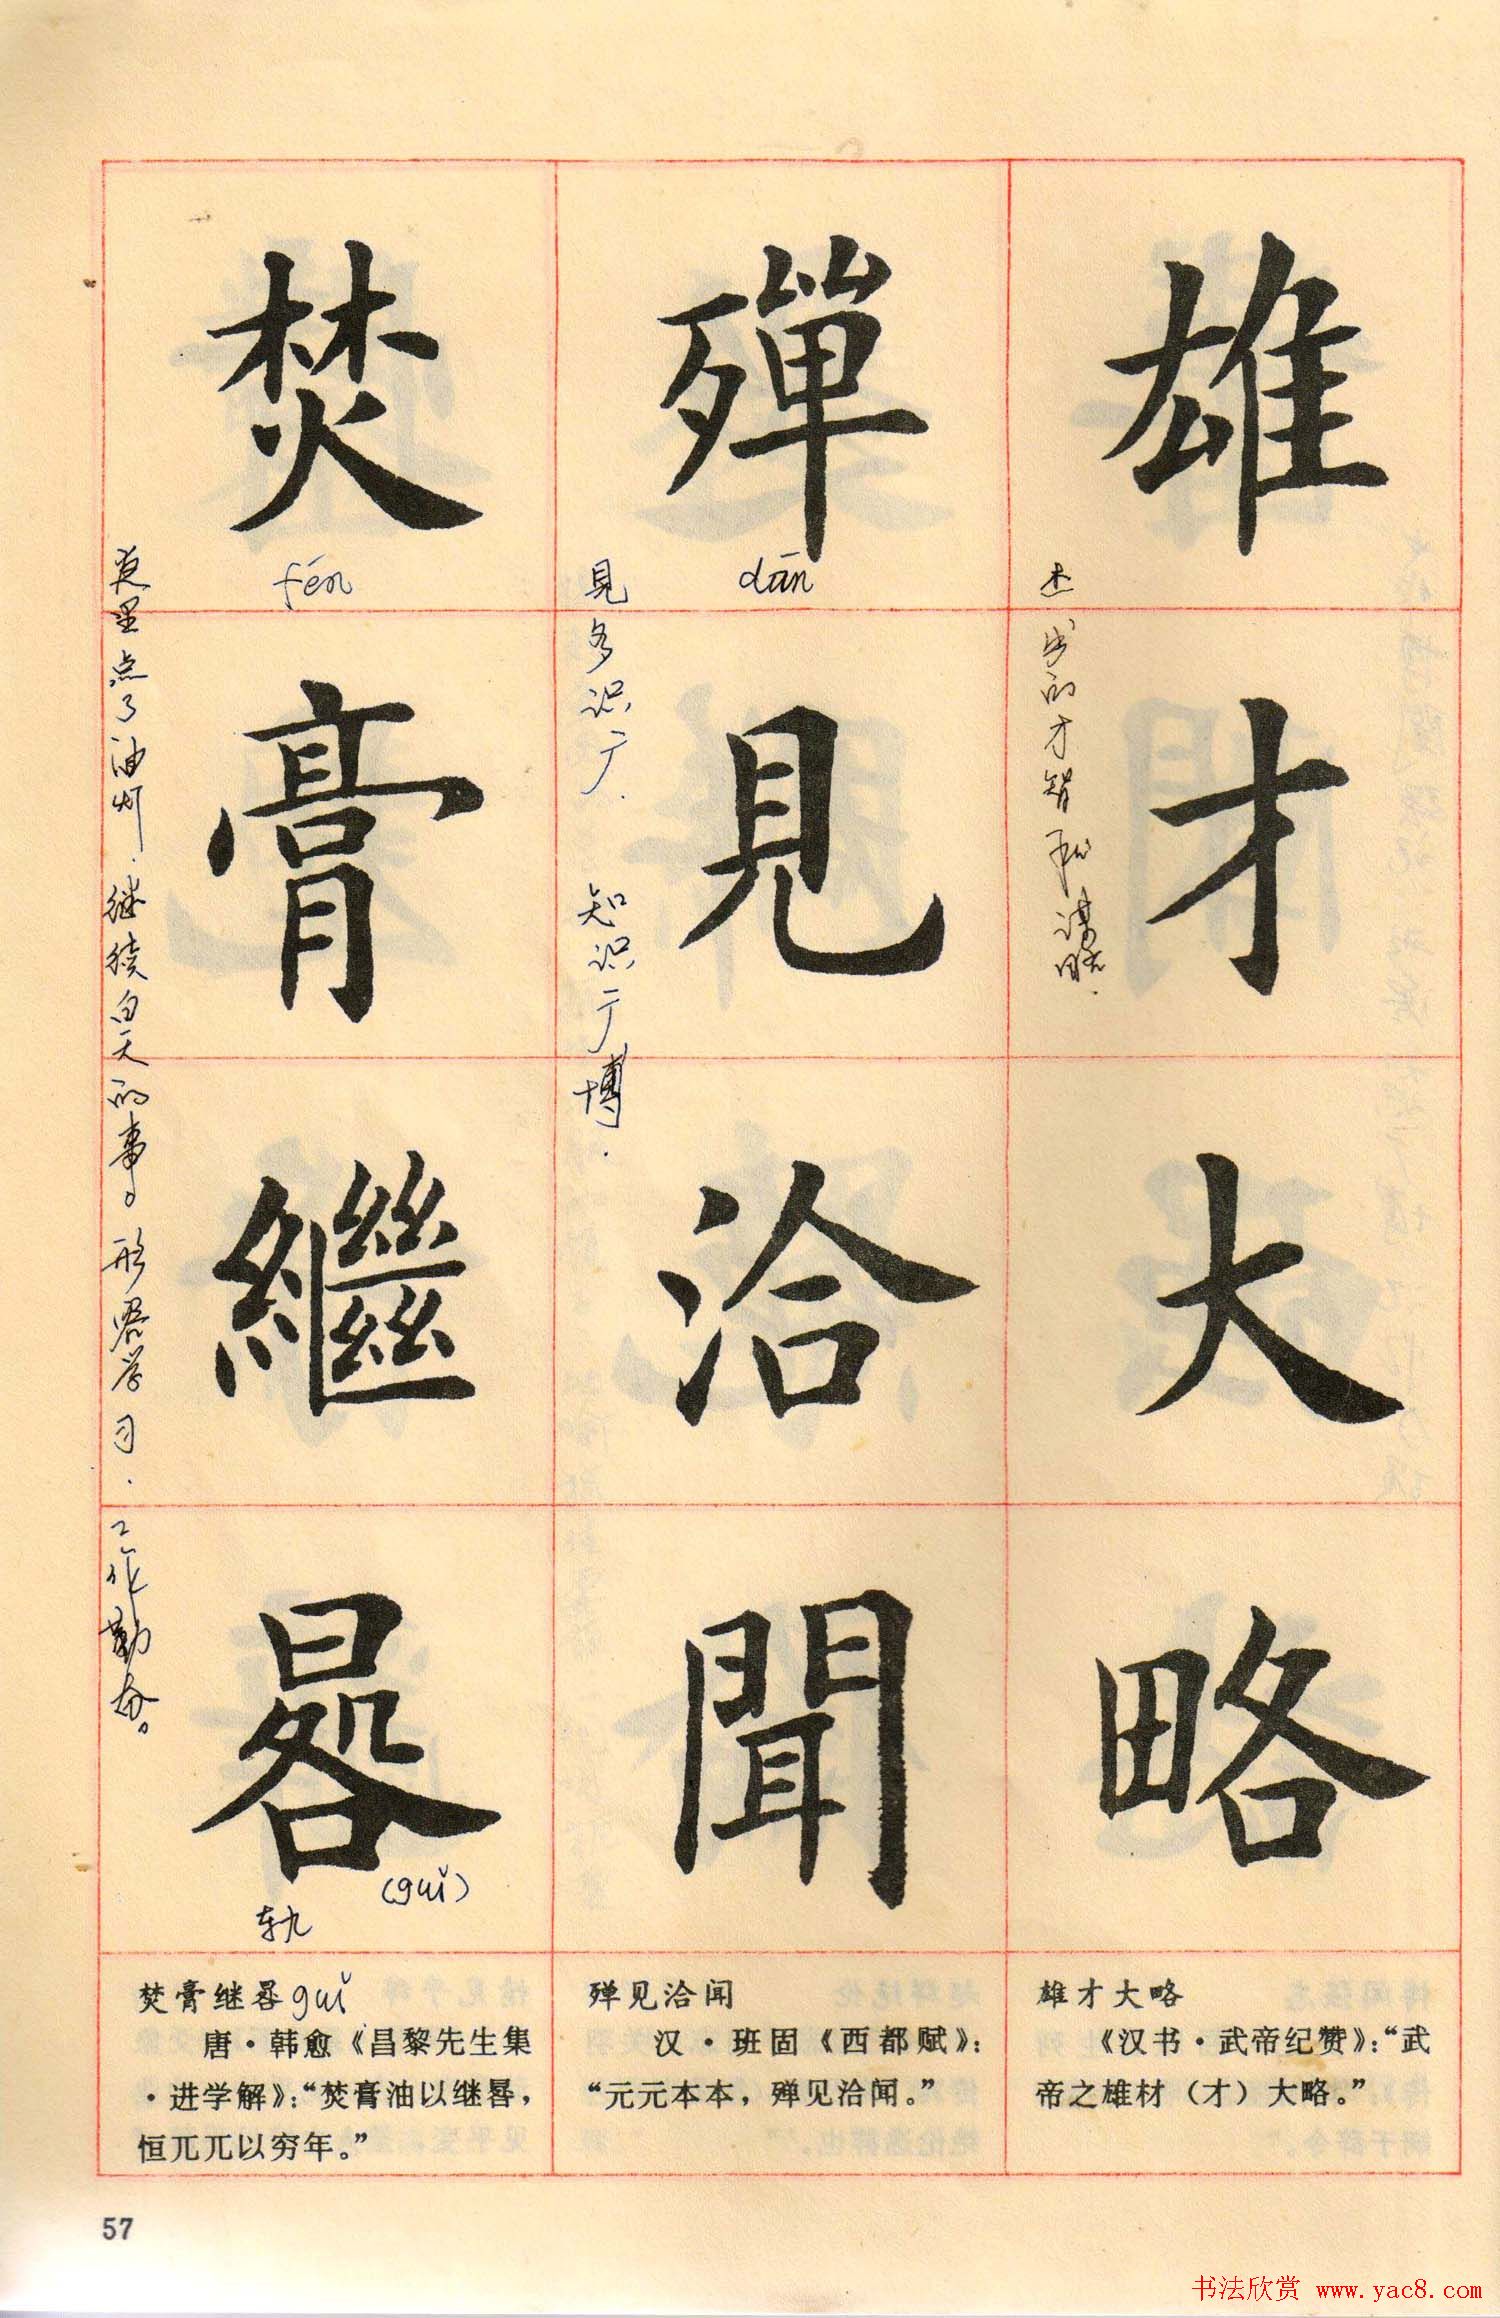 雄才大略
殫見洽聞
焚膏繼晷
杰出的才智和谋略.
dān
見多识广.知识广博.
fén
夜里点了油灯.继续白天的事。形容学习.工作勤奋。
(guǐ)
轨
焚膏继晷guǐ
唐·韩愈《昌黎先生集
·进学解》:“焚膏油以继晷,
恒兀兀以穷年。”
殚见洽闻
汉·班固《西都赋》:
“元元本本,殚见洽闻。”
雄才大略
《汉书·武帝纪赞》:“武
帝之雄材(才)大略。”
57
书法欣赏 www.yac8.com